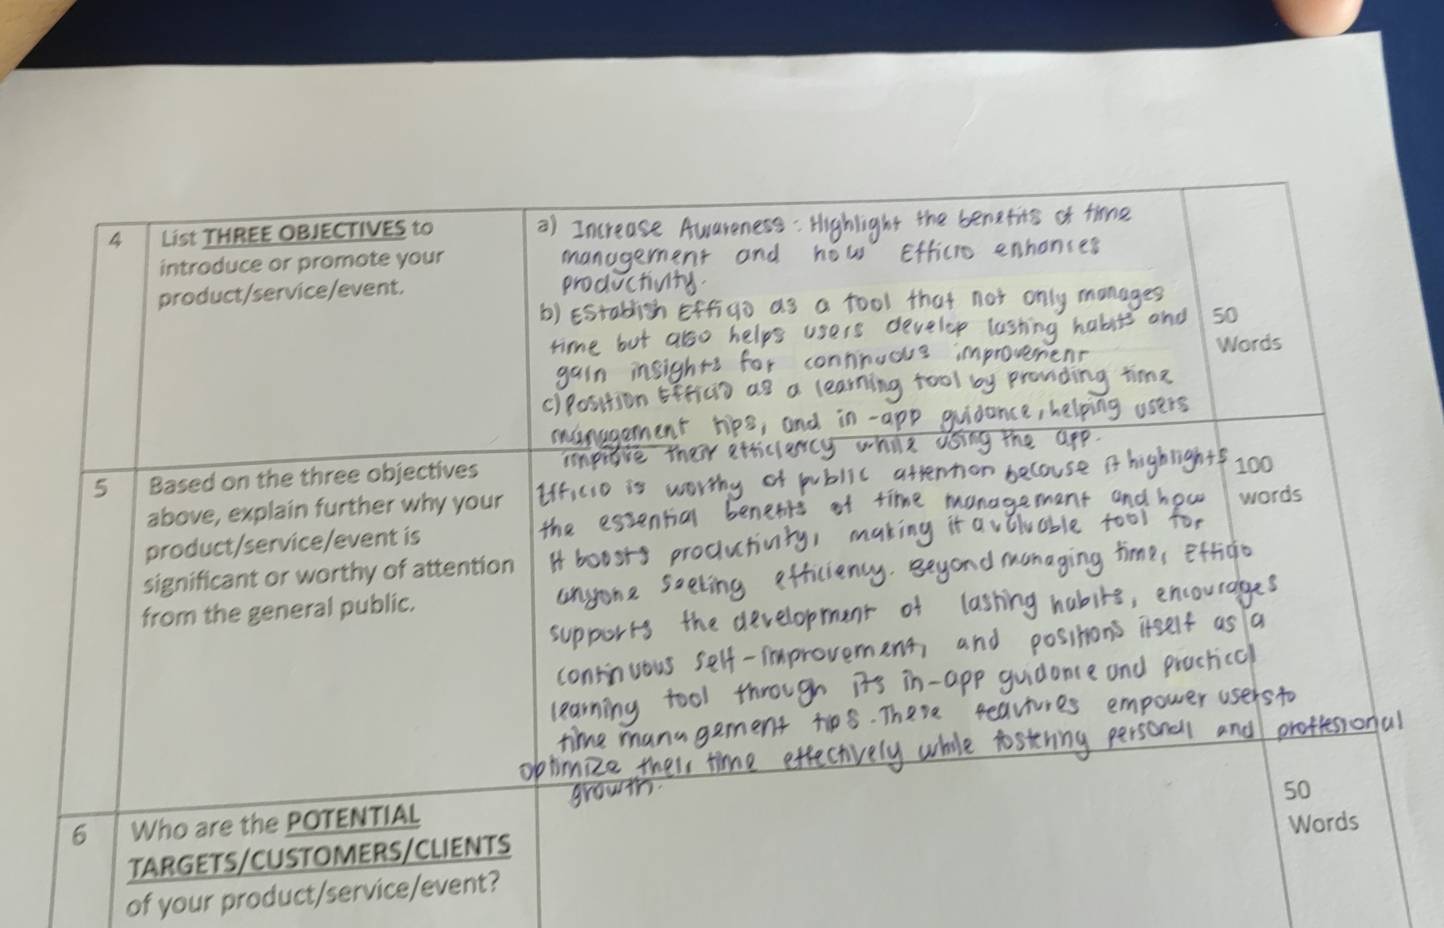 4
List THREE OBJECTIVES to
introduce or promote your
product/service/event.
a) Increase Awareness: Highlight the benefits of time
management and how Efficio enhances
productivity.
b) Establish Efficio as a tool that not only manages
time but also helps users develop lasting habits and
gain insights for continuous improvement
c) Position Efficio as a learning tool by providing time
management tips, and in-app guidance, helping users
improve their efficiency while using the app.
50
Words
5
Based on the three objectives
above, explain further why your
product/service/event is
significant or worthy of attention
from the general public.
Efficio is worthy of public attention because it highlights
the essential benefits of time management and how
it boosts productivity, making it a valuable tool for
anyone seeking efficiency. Beyond managing time, Efficio
supports the development of lasting habits, encourages
continuous self-improvement, and positions itself as a
learning tool through its in-app guidance and practical
time management tips. These features empower users to
optimize their time effectively while fostering personal and proffessional
growth.
100
words
6
Who are the POTENTIAL
TARGETS/CUSTOMERS/CLIENTS
of your product/service/event?
50
Words